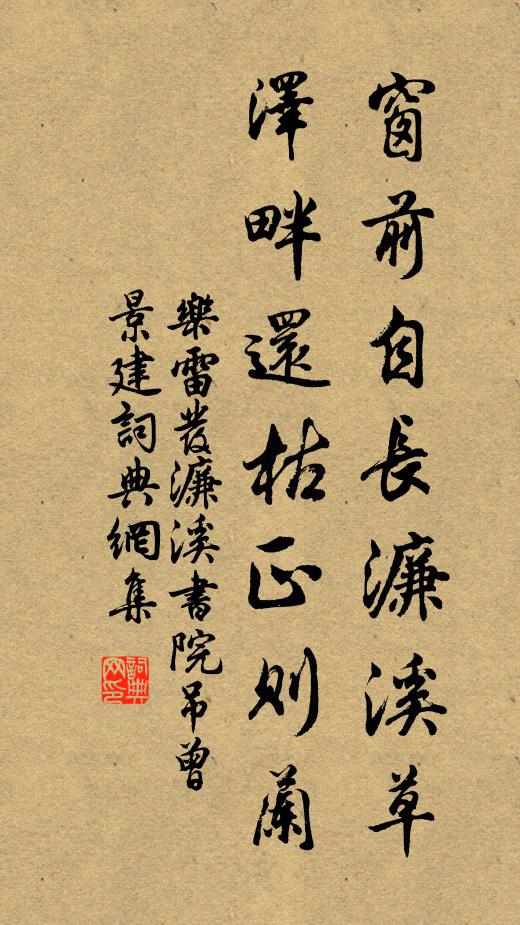 窗前自長濂溪草
澤畔還枯正則蘭
樂雷發濂溪書院吊曾
景建詞典網集
詞典网印